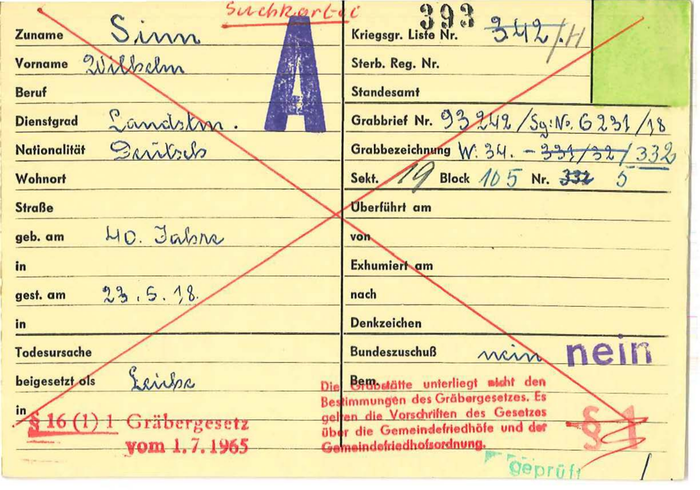 Suchkartei
393
Zuname Sinn
Vorname Wilhelm
Beruf
Dienstgrad Landstm.
Nationalität Deutsch
Wohnort
Straße
geb. am 40. Jahre
in
gest. am 23.5.18.
in
Todesursache
beigesetzt als Leiche
in
A
Kriegsgr. Liste Nr. 342/H
Sterb. Reg. Nr.
Standesamt
Grabbrief Nr. 93242/Sg:No. 6231/18
Grabbezeichnung W. 34. - 331/32/332
Sekt. 19 Block 105 Nr. 332 5
Überführt am
von
Exhumiert am
nach
Denkzeichen
Bundeszuschuß nein nein
Bem.
Die Grabstätte unterliegt nicht den
Bestimmungen des Gräbergesetzes. Es
gelten die Vorschriften des Gesetzes
über die Gemeindefriedhöfe und der
Gemeindefriedhofsordnung.
§ 16 (1) 1 Gräbergesetz
vom 1.7.1965
§ 1
geprüft